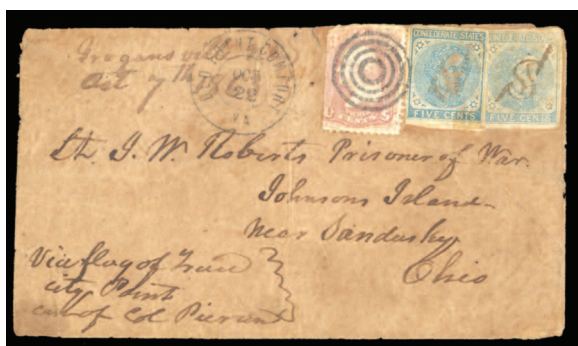 Oct 7th
OLD POINT COMFORT
OCT
22
VA
CONFEDERATE STATES
FIVE CENTS
FIVE CENTS
Lt. J. W. Roberts Prisoner of War.
Johnsons Island
Near Sandusky
Ohio
Via flag of Truce
City Point
care of Col